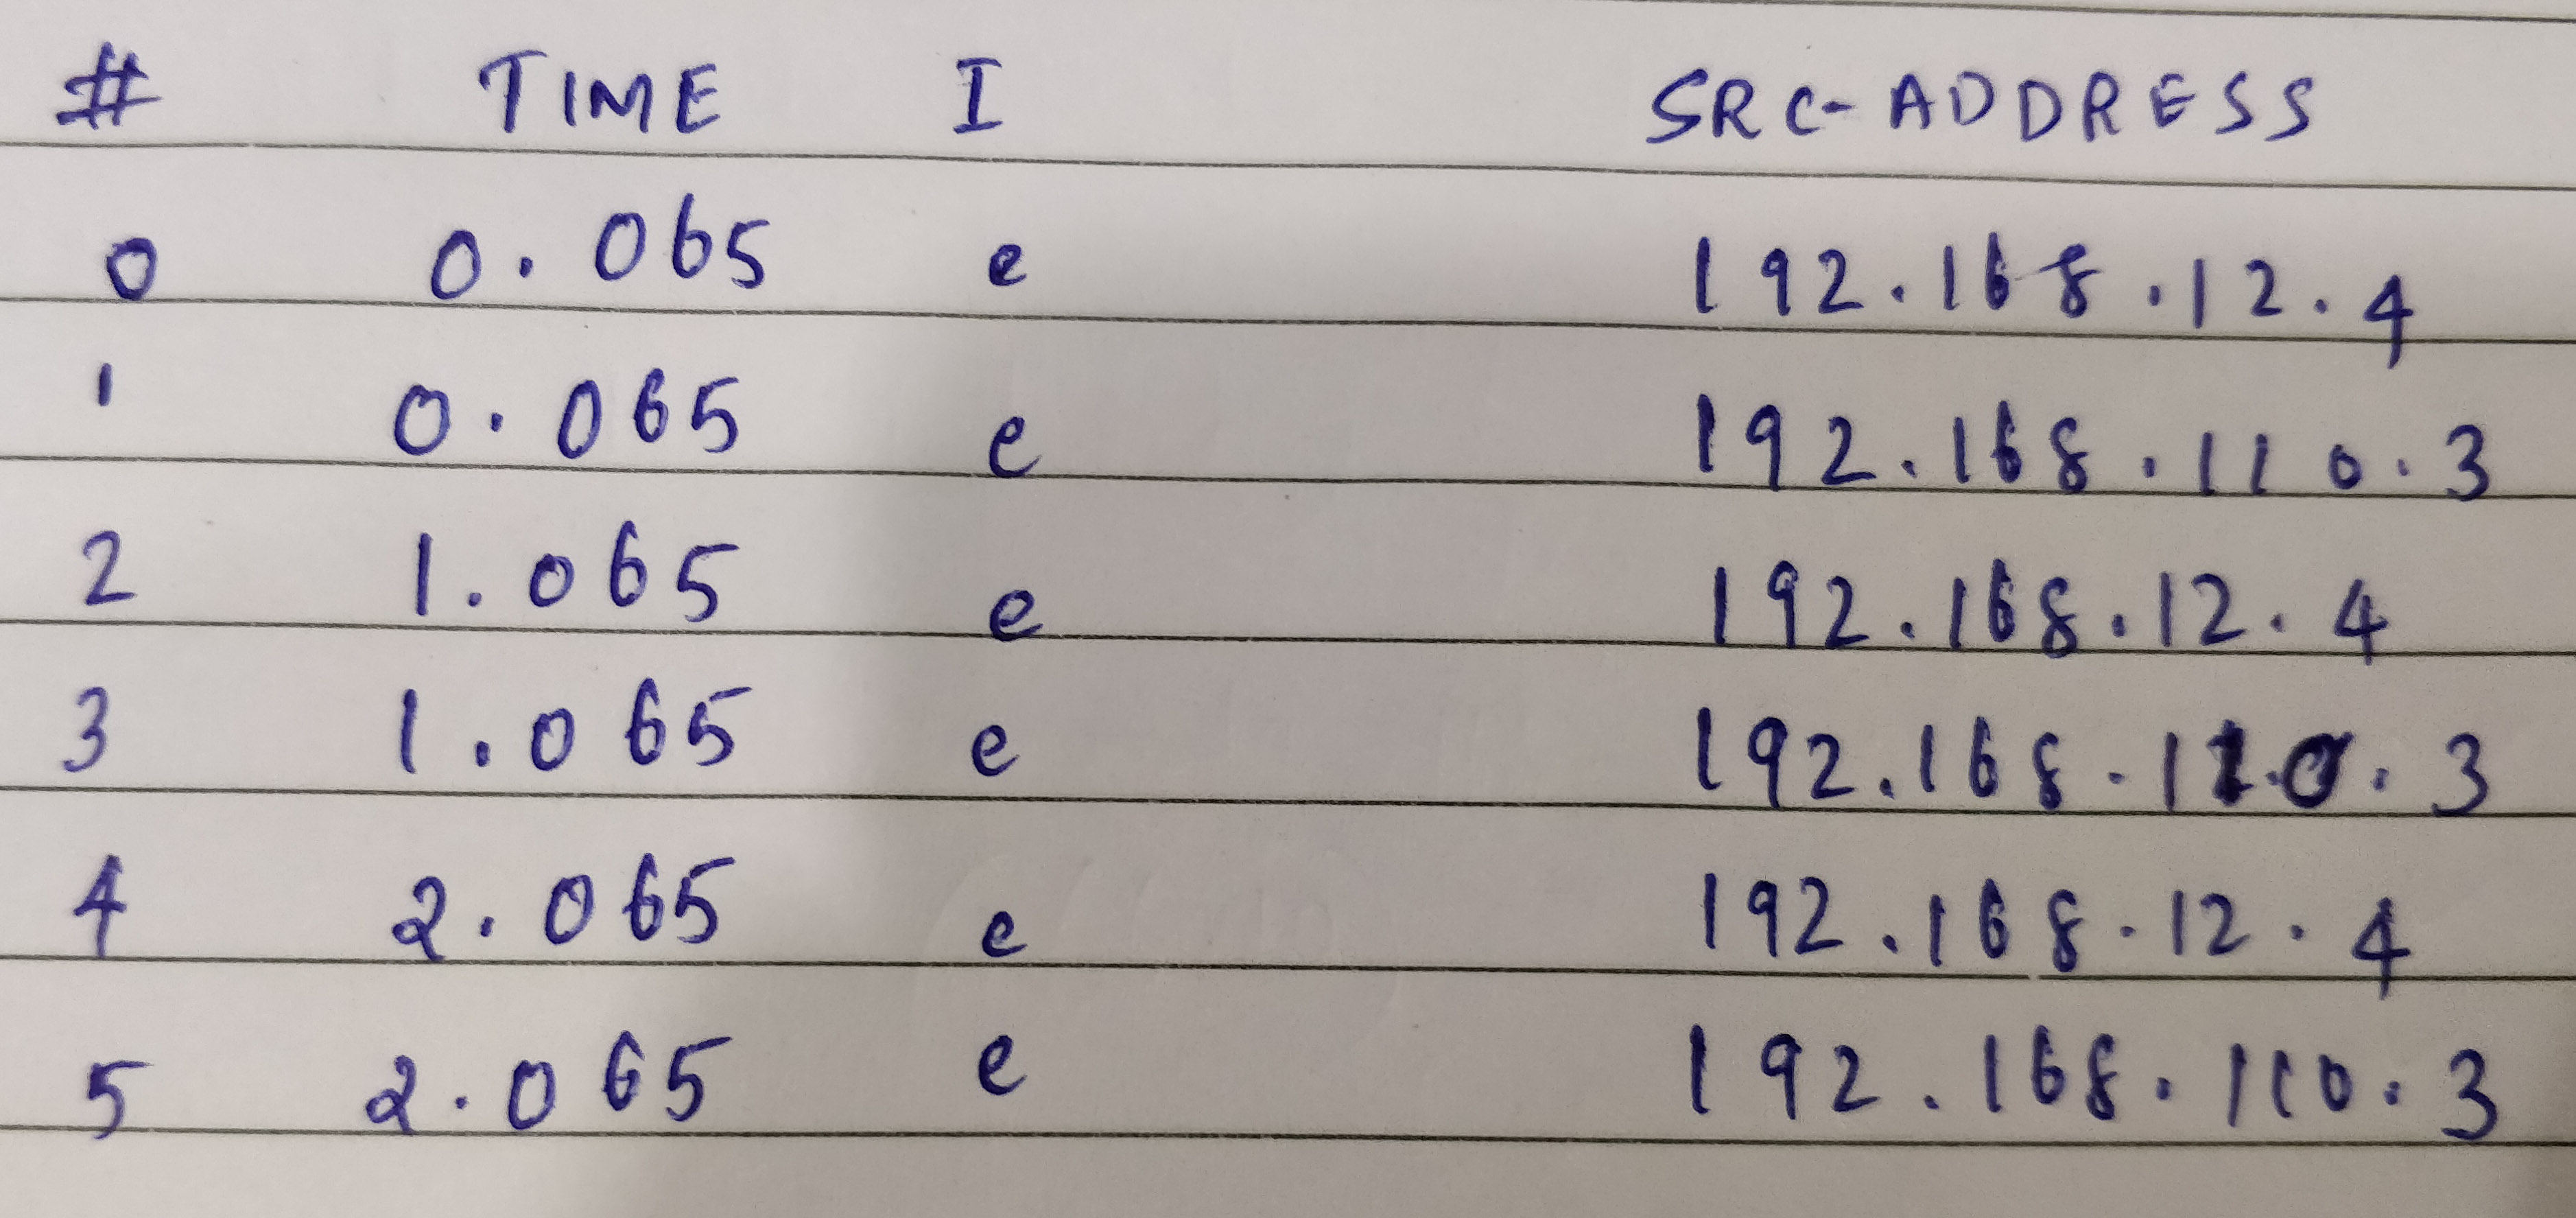 # TIME I SRC-ADDRESS
0 0.065 e 192.168.12.4
1 0.065 e 192.168.110.3
2 1.065 e 192.168.12.4
3 1.065 e 192.168.110.3
4 2.065 e 192.168.12.4
5 2.065 e 192.168.110.3